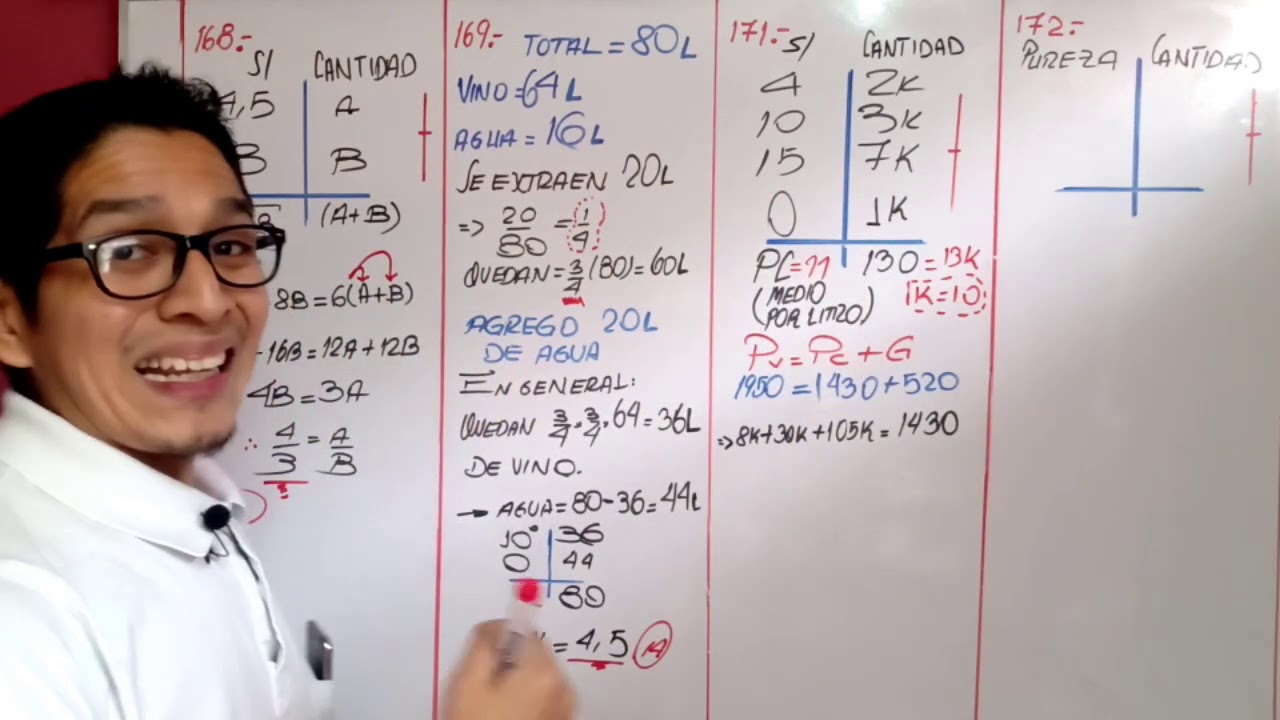 168.-
S/ CANTIDAD
4,5 A
B B
(A+B)
8B=6(A+B)
-16B=12A+12B
4B=3A
∴ 4/3 = A/B
169.- TOTAL = 80L
VINO=64L
AGUA=16L
SE EXTRAEN 20L
=> 20/80 = 1/4
QUEDAN = 3/4 (80)=60L
AGREGO 20L
DE AGUA
EN GENERAL:
QUEDAN 3/4 . 3/4 . 64 = 36L
DE VINO.
→ AGUA=80-36=44L
10° 36
0 44
80
= 4,5
171.- S/ CANTIDAD
4 2K
10 3K
15 7K
0 1K
PC=11 130=13K
(MEDIO POR LITRO) K=10
Pv=Pc+G
1950=1430+520
=> 8K+30K+105K=1430
172.-
PUREZA CANTIDAD